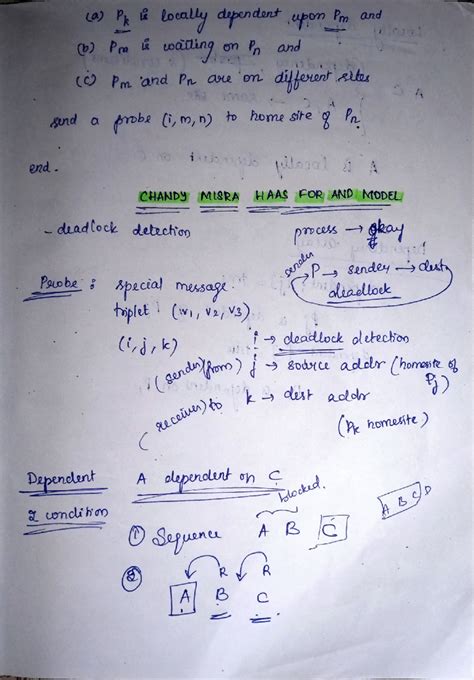 (a) Pk is locally dependent upon Pm and
(b) Pm is waiting on Pn and
(c) Pm and Pn are on different sites
send a probe (i, m, n) to home site of Pn
end.
CHANDY MISRA HAAS FOR AND MODEL
- deadlock detection
process → okay
sender
P → sender → dest
deadlock
Probe : special message.
triplet (v1, v2, v3)
(i, j, k)
i → deadlock detection
(sender/from) j → source addr (homesite of Pj)
(receiver/to) k → dest addr
(Pk homesite)
Dependent A dependent on C
2 condition
blocked.
① Sequence A B C
A B C D
② R R
A B C